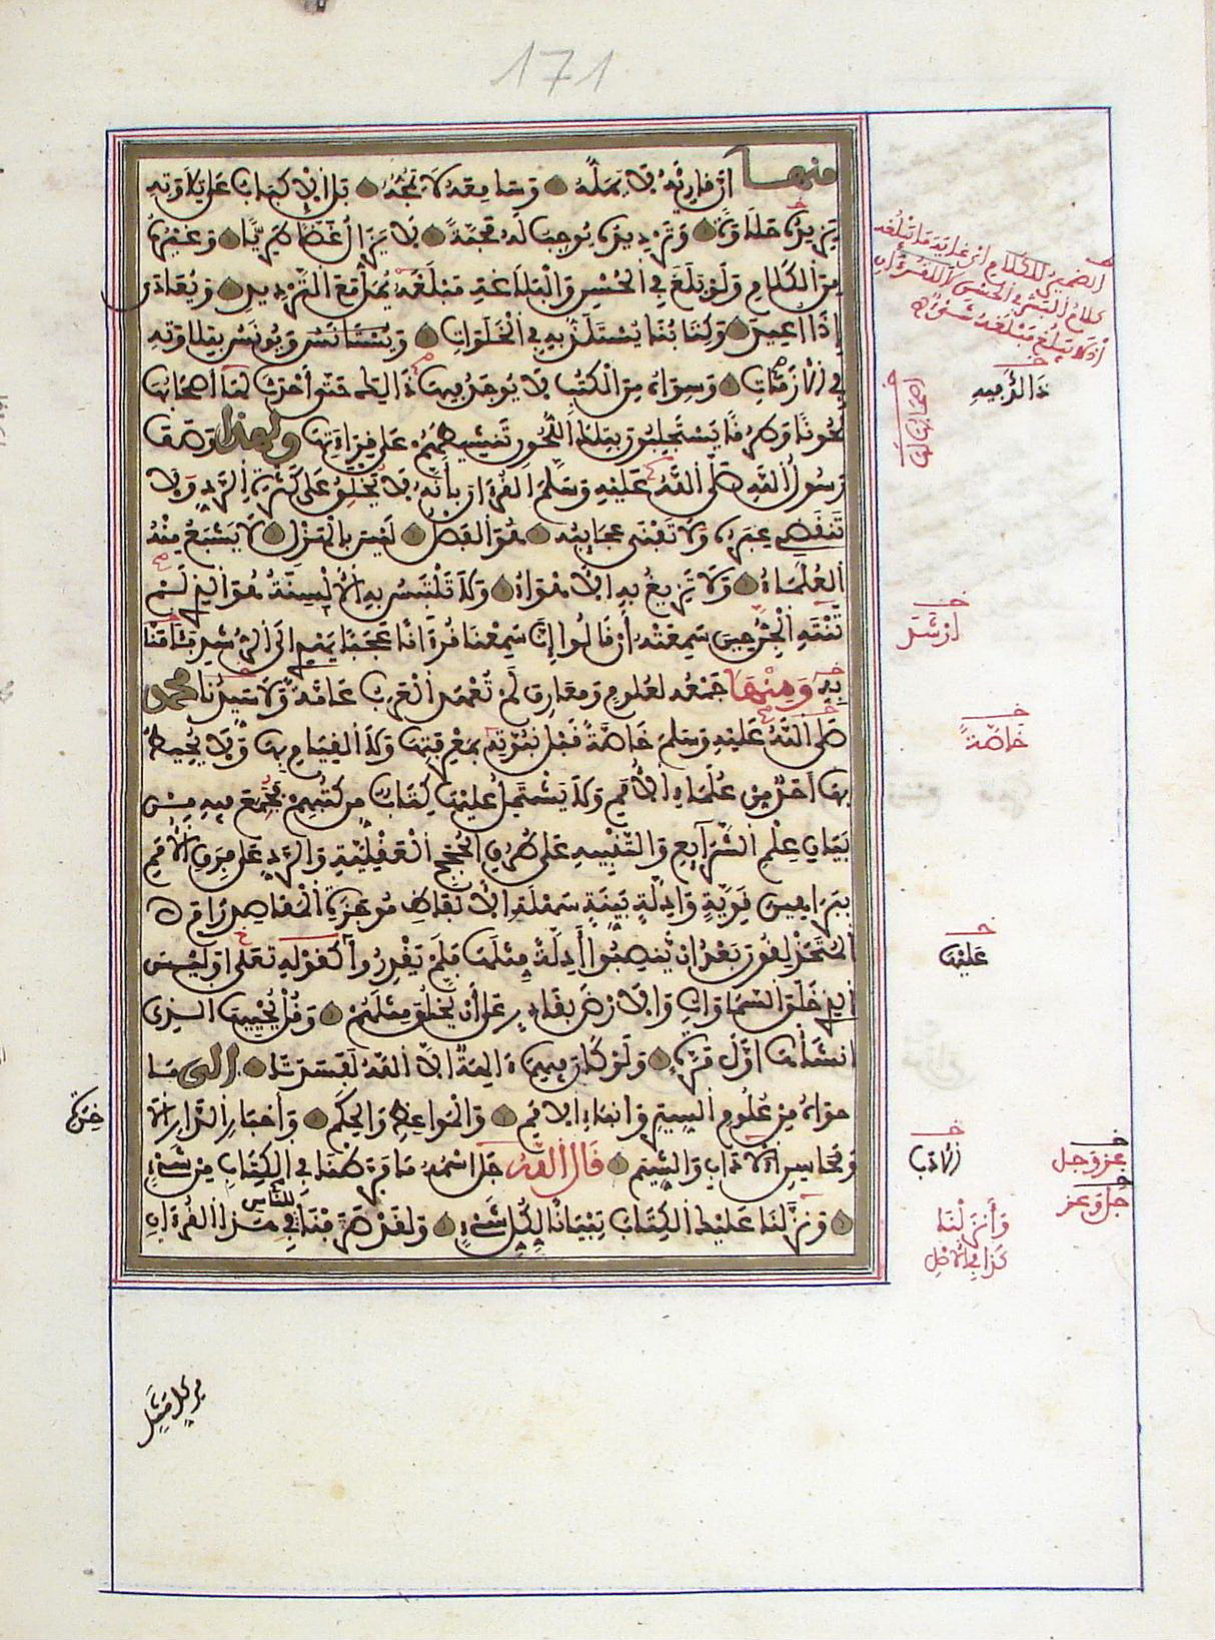 171
منها أن قارئه لا يمله وسامعه لا يمجه بل الإكباب على تلاوته
يزيده حلاوة وترديده يوجب له محبة لا يزال غضا طريا وغيره
من الكلام ولو بلغ في الحسن والبلاغة مبلغه يمل مع الترديد ويعادى
إذا اعيد وكتابنا يستلذ به في الخلوات ويستانس ويونس بتلاوته
في الازمات وسواه من الكتب لا يوجد فيها ذالك حتى أحدث لها أصحابها
لحونا وطرقا يستجلبون بتلك اللحون تنشيطهم على قراءتها ولهذا وصف
رسول الله صلى الله عليه وسلم القرءان بأنه لا يخلق على كثرة الرد ولا
تنقضي عبره ولا تفنى عجايبه هو الفصل ليس بالهزل لا يشبع منه
العلماء ولا تزيغ به الاهواء ولا تلتبس به الالسنة هو الذي لم
تنته الجن حين سمعته أن قالوا إنا سمعنا قرءانا عجبا يهدي الى الرشد فئامنا
به ومنها جمعه لعلوم ومعارف لم تعهد العرب عامة ولا سيدنا محمد
صلى الله عليه وسلم خاصة قبل نبوته بمعرفتها ولا القيام بها ولا يحيط
بها أحد من علماء الأمم ولا يشتمل عليها كتاب من كتبهم فجمع فيه من
بيان علم الشرايع والتنبيه على طرق الحجج العقلية والرد على فرق الأمم
ببراهين قوية وادلة بينة سهلة الألفاظ موجزة المقاصد رام
المتحذلقون بعد ان ينصبوا أدلة مثلها فلم يقدروا كقوله تعلى اوليس
الذي خلق السماوات والارض بقادر على أن يخلق مثلهم وقل يحييها الذي
انشأها أول مرة ولو كان فيهما ءالهة الا الله لفسدتا الى ما
حواه من علوم السير وانباء الامم والمواعظ والحكم وأخبار الدار الا
خرة
ومحاسن الاداب والشيم قال الله جل اسمه ما فرطنا في الكتاب من شيء
ونزلنا عليك الكتاب تبيانا لكل شيء ولقد ضربنا للناس في هذا القرءان
من كل مثل
الضمير للكلام اي غاية ما تبلغه
كلام البشر في الحسن لا للقرءان
اذ لا يبلغ مبلغه شيء
خـ
ذا الرميه
أصحابها لها
خـ
ارشد
خـ
خاصة
خـ
عليها
خـ
الادب
خـ
عز وجل
جل وعز
وأنزلنا
كذا في الاصل